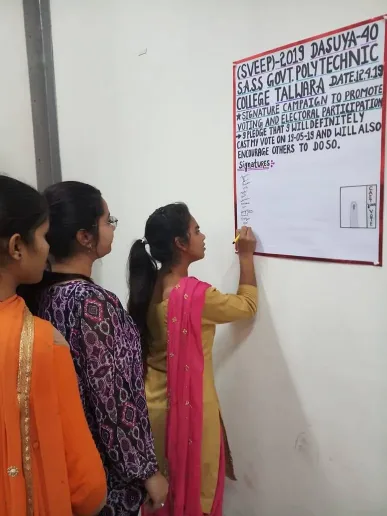 (SVEEP)-2019 DASUYA-40
S.A.S.S GOVT. POLYTECHNIC
COLLEGE TALWARA DATE:12.4.19
*SIGNATURE CAMPAIGN TO PROMOTE
VOTING AND ELECTORAL PARTICIPATION
→ I PLEDGE THAT I WILL DEFINITELY
CAST MY VOTE ON 19-05-19 AND WILL ALSO
ENCOURAGE OTHERS TO DO SO.
Signatures:-
CAST VOTE